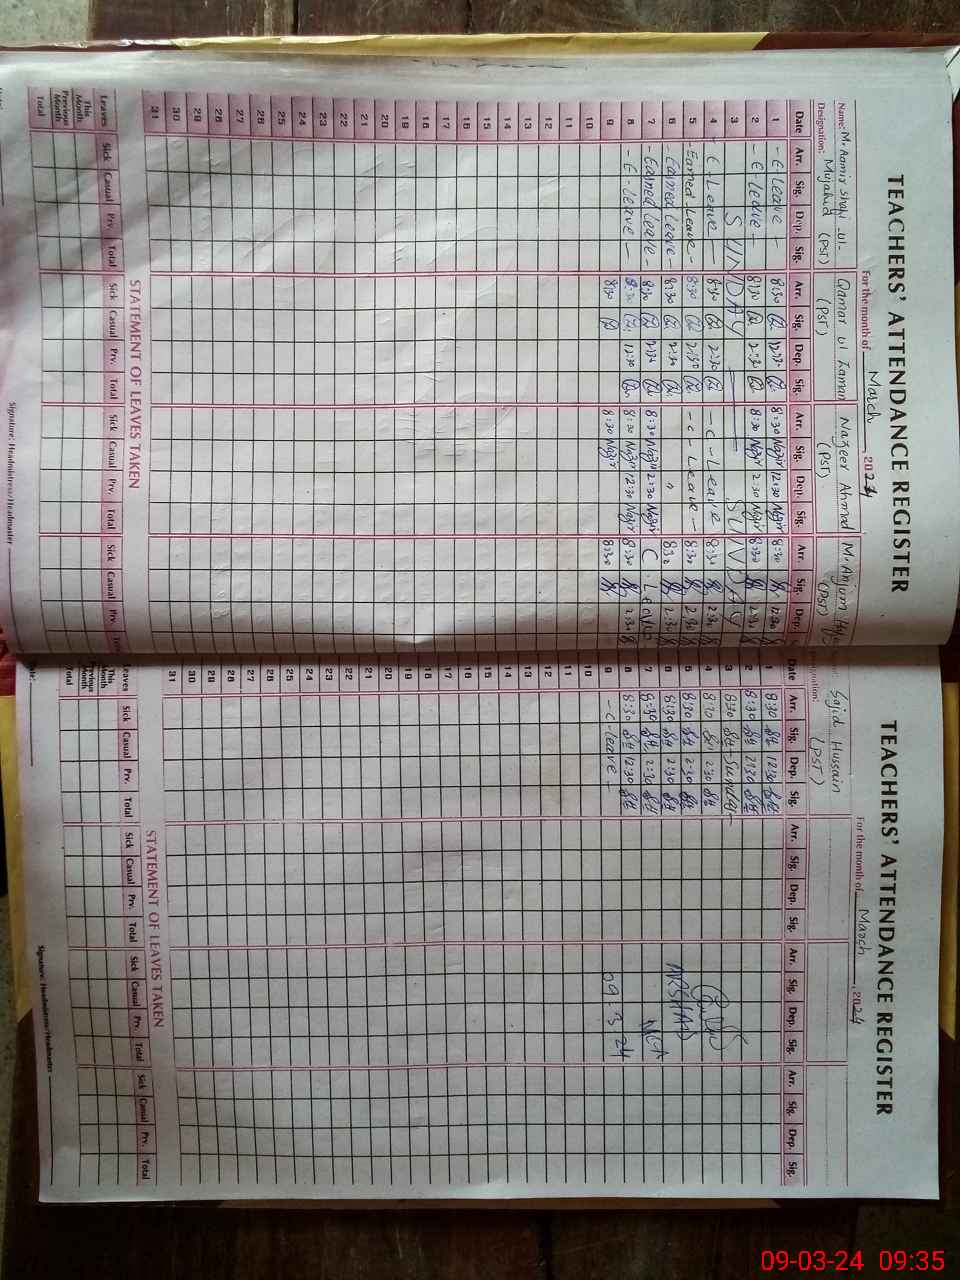 TEACHERS' ATTENDANCE REGISTER
For the month of March, 2024
Name: M. Aamir Shafi -ul- Mujahid (PST) Qamar ul Zaman (PST) Nazeer Ahmad (PST) M. Anjum (PST)
Designation:
Date Arr. Sig. Dep. Sig. Arr. Sig. Dep. Sig. Arr. Sig. Dep. Sig. Arr. Sig. Dep.
1 - E Leave - 8:30 12:30 8:30 Nazir 12:30 Nazir 8:30 12:30
2 - E Leave - 8:30 2:30 8:30 Nazir 2:30 Nazir 8:30 2:30
3 SUNDAY SUNDAY
4 - E - Leave - 8:30 2:30 - C - Leave 8:30 2:30
5 - Earned Leave - 8:30 2:30 - C - Leave - 8:30 2:30
6 - Earned Leave - 8:30 2:30 " 8:30 2:30
7 - Earned Leave - 8:30 2:30 8:30 Nazir 2:30 Nazir C Leave
8 - E - Leave - 8:30 12:30 8:30 Nazir 12:30 Nazir 8:30 2:30
9 8:30 8:30 Nazir 8:30
10
11
12
13
14
15
16
17
18
19
20
21
22
23
24
25
26
27
28
29
30
31
STATEMENT OF LEAVES TAKEN
Leaves Sick Casual Prv. Total Sick Casual Prv. Total Sick Casual Prv. Total Sick Casual Prv.
This Month
Previous Month
Total
Signature: Headmistress/Headmaster
TEACHERS' ATTENDANCE REGISTER
For the month of March, 2024
Sajid Hussain
(PST)
Date Arr. Sig. Dep. Sig. Arr. Sig. Dep. Sig. Arr. Sig. Dep. Sig. Arr. Sig. Dep. Sig.
1 8:30 12:30
2 8:30 2:30
3 8:30 - Sunday -
4 8:30 2:30
5 8:30 2:30
6 8:30 2:30
7 8:30 2:30
8 8:30 12:30
9 - C - leave -
10
11
12
13
14
15
16
17
18
19
20
21
22
23
24
25
26
27
28
29
30
31
ARSHAD
MEA
09.3.24
STATEMENT OF LEAVES TAKEN
Leaves Sick Casual Prv. Total Sick Casual Prv. Total Sick Casual Prv. Total Sick Casual Prv. Total
This Month
Previous Month
Total
Signature: Headmistress/Headmaster
09-03-24 09:35